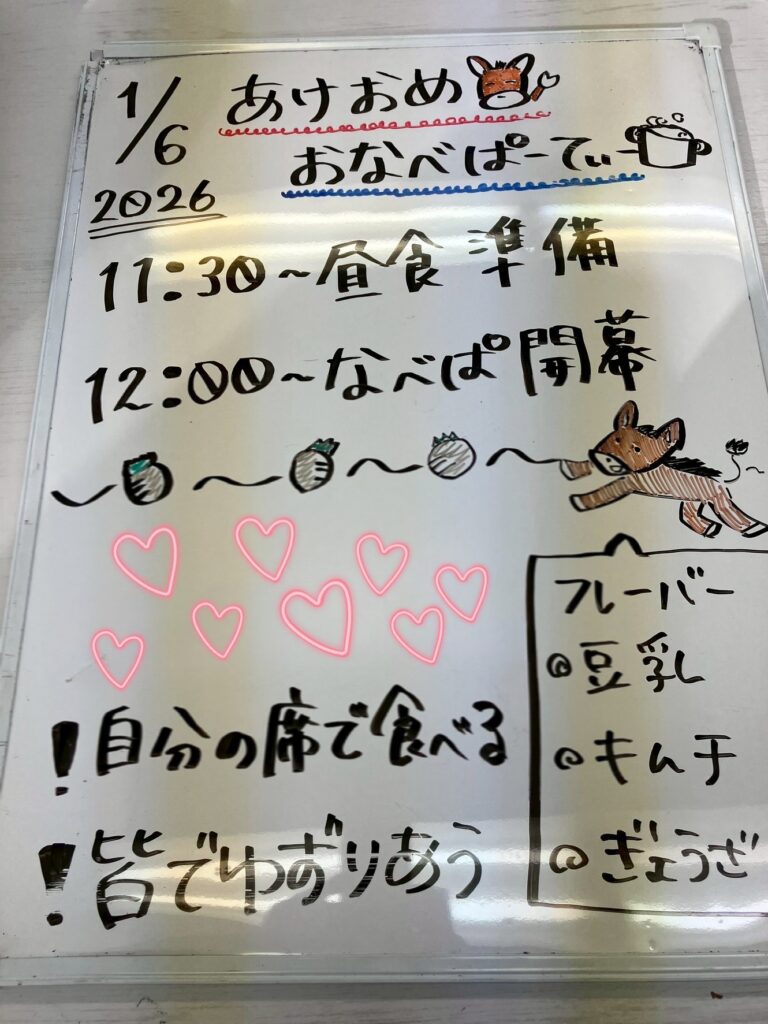 1/6
あけおめ
2026
おなべぱーてぃー
11:30~昼食準備
12:00~なべぱ開幕
フレーバー
◎豆乳
◎キムチ
◎ぎょうざ
!自分の席で食べる
!皆でゆずりあう